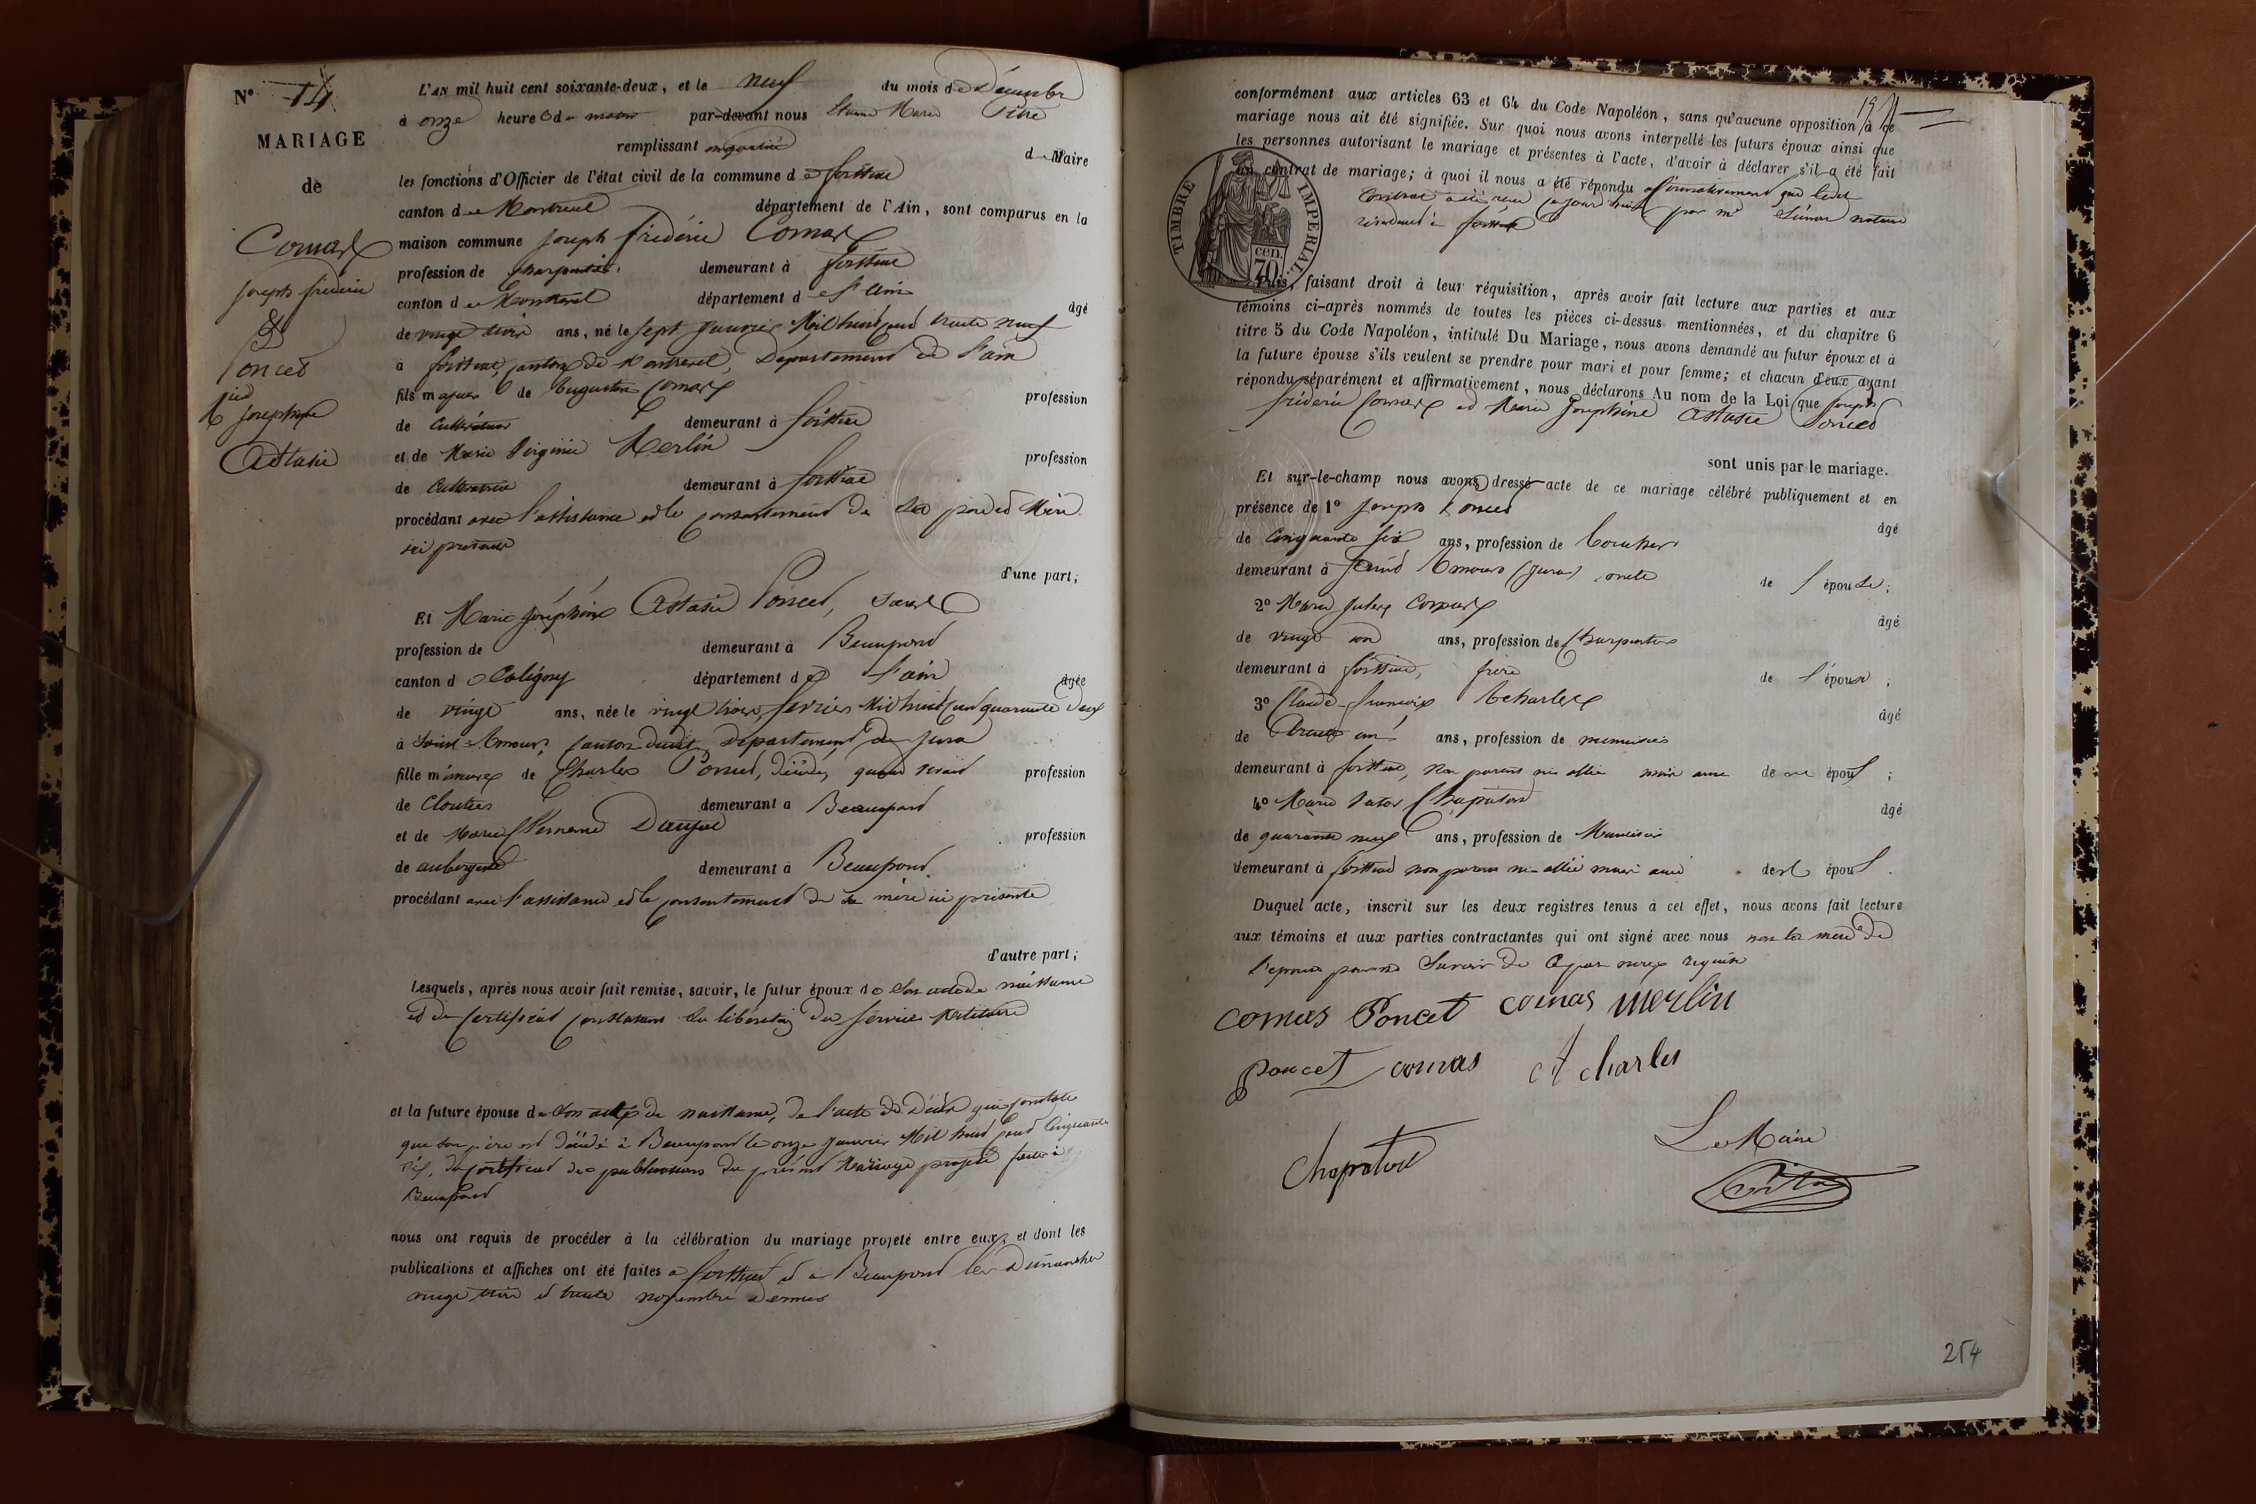 N° 14
MARIAGE
de
Comas
joseph frédéric
&
Poncet
Joséphine
Astasie
L'AN mil huit cent soixante-deux, et le neuf du mois de Décembre
à onze heures du matin par-devant nous Marie
remplissant en qualité de Maire
les fonctions d'Officier de l'état civil de la commune de foissiat
canton de Montrevel département de l'Ain, sont comparus en la
maison commune joseph frédéric Comas
profession de charpentier demeurant à foissiat
canton de Montrevel département de l'ain âgé
de vingt trois ans, né le sept janvier Mil huit cent trente neuf
à foissiat, canton de Montrevel, Département de l'ain
fils majeur de Augustin Comas profession
de cultivateur demeurant à foissiat
et de Marie Virginie Merlin profession
de cultivatrice demeurant à foissiat
procédant avec l'assistance et le consentement de ses père et Mère
ici présents
d'une part;
Et Marie joséphine Astasie Poncet,
profession de demeurant à Beaupont
canton de Coligny département de l'ain âgée
de vingt ans, née le vingt trois février Mil huit cent quarante deux
à Saint-Amour, canton dudit, Département du Jura
fille mineure de Charles Poncet, décédé, quand vivait profession
de Cloutier demeurant à Beaupont
et de Marie profession
de aubergiste demeurant à Beaupont
procédant avec l'assistance et le consentement de sa mère ici présente
d'autre part;
Lesquels, après nous avoir fait remise, savoir, le futur époux de son acte de naissance
et du certificat constatant sa libération du service militaire
et la future épouse de son acte de naissance, de l'acte de décès qui constate
que son père est décédé à Beaupont le onze janvier Mil huit cent cinquante
six, du certificat des publications du présent Mariage projeté faites à
Beaupont
nous ont requis de procéder à la célébration du mariage projeté entre eux, et dont les
publications et affiches ont été faites à foissiat et à Beaupont les Dimanches
vingt trois et trente novembre dernier
conformément aux articles 63 et 64 du Code Napoléon, sans qu'aucune opposition à ce
mariage nous ait été signifiée. Sur quoi nous avons interpellé les futurs époux ainsi que
les personnes autorisant le mariage et présentes à l'acte, d'avoir à déclarer s'il a été fait
un contrat de mariage; à quoi il nous a été répondu affirmativement que ledit
contrat a été reçu ce jour par me notaire
résidant à foissiat
TIMBRE IMPÉRIAL
70 cen.
Puis, faisant droit à leur réquisition, après avoir fait lecture aux parties et aux
témoins ci-après nommés de toutes les pièces ci-dessus mentionnées, et du chapitre 6
titre 5 du Code Napoléon, intitulé Du Mariage, nous avons demandé au futur époux et à
la future épouse s'ils veulent se prendre pour mari et pour femme; et chacun d'eux ayant
répondu séparément et affirmativement, nous déclarons Au nom de la Loi que joseph
frédéric Comas et Marie Joséphine Astasie Poncet
sont unis par le mariage.
Et sur-le-champ nous avons dressé acte de ce mariage célébré publiquement et en
présence de 1° joseph Poncet âgé
de cinquante six ans, profession de
demeurant à Saint Amour (jura) oncle de l'épouse;
2° Marie Comas âgé
de vingt ans, profession de charpentier
demeurant à foissiat, frère de l'époux;
3° Claude-françois Acharles âgé
de trente ans, profession de menuisier
demeurant à foissiat, non parent ni allié mais ami de époux;
4° Marie Chapotard âgé
de quarante neuf ans, profession de
demeurant à foissiat non parent ni allié mais ami de époux.
Duquel acte, inscrit sur les deux registres tenus à cet effet, nous avons fait lecture
aux témoins et aux parties contractantes qui ont signé avec nous non la mère de
l'épouse pour ne savoir de ce par nous requise
comas Poncet comas merlin
poncet comas Acharles
Chapotard
Le Maire
254